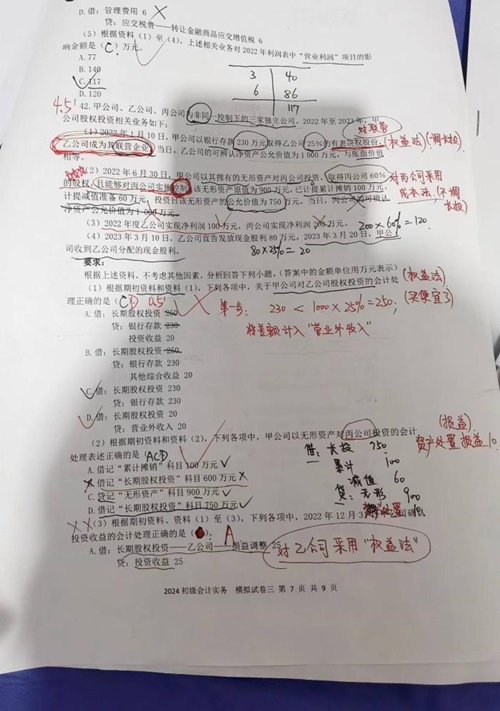 D.借：管理费用 6
贷：应交税费——转让金融商品应交增值税 6
（5）根据资料（1）至（4），上述相关业务对2022年利润表中“营业利润”项目的影
响金额是（C）万元。
A.77
B.140
C.117
D.120
3 40
6 86
117
4.5' 42.甲公司、乙公司、丙公司为非同一控制下的三家独立公司。2022年至2023年，甲
公司股权投资相关业务如下：
（1）2022年1月10日，甲公司以银行存款230万元取得乙公司25%的有表决权股份，
乙公司成为其联营企业，当日，乙公司的可辨认净资产公允价值为1 000万元，与账面价值
相等。
（权益法）
（2）2022年6月30日，甲公司以其拥有的无形资产对丙公司投资，取得丙公司60%
的股权，且能够对丙公司实施控制，该无形资产原值为900万元，已计提累计摊销100万元，
计提减值准备60万元，投资日该无形资产的公允价值为750万元，当日，丙公司的可辨认
净资产公允价值为1 000万元。
对丙公司采用
成本法
（3）2022年度乙公司实现净利润100万元，丙公司实现净利润200万元。
200×60%=120
（4）2023年3月10日，乙公司宣告发放现金股利80万元，2023年3月20日，甲公
司收到乙公司分配的现金股利。
80×25%=20
要求：
根据上述资料，不考虑其他因素，分析回答下列小题。（答案中的金额单位用万元表示）
（1）根据期初资料和资料（1），下列各项中，关于甲公司对乙公司股权投资的会计处
理正确的是（CD
（权益法）
（买便宜了）
A.借：长期股权投资 250
贷：银行存款 230
投资收益 20
第一步：230 < 1000×25%=250，
将差额计入“营业外收入”
B.借：长期股权投资 250
贷：银行存款 230
其他综合收益 20
C.借：长期股权投资 230
贷：银行存款 230
D.借：长期股权投资 20
贷：营业外收入 20
（2）根据期初资料和资料（2），下列各项中，甲公司以无形资产对丙公司投资的会计
处理表述正确的是（ACD
（损益）
资产处置损益10
A.借记“累计摊销”科目100万元
B.借记“长期股权投资”科目600万元
C.贷记“无形资产”科目900万元
D.借记“长期股权投资”科目750万元
借：长投 750
累计 100
减值 60
贷：无形 900
（3）根据期初资料、资料（1）至（3），下列各项中，2022年12月3
投资收益的会计处理正确的是（ A
A.借：长期股权投资——乙公司——损益调整 25
贷：投资收益 25
对乙公司采用“权益法”
2024初级会计实务 模拟试卷三 第 7 页 共 9 页